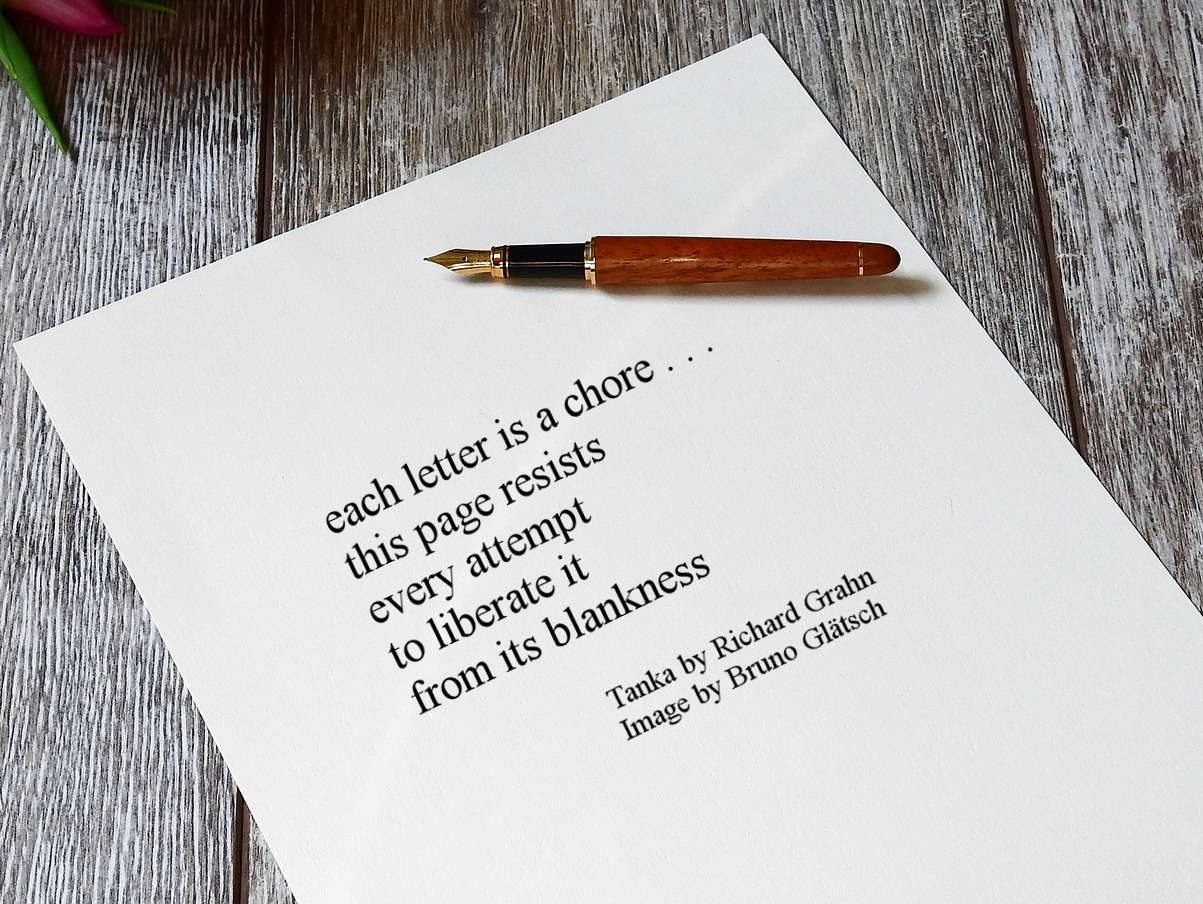 each letter is a chore . . .
this page resists
every attempt
to liberate it
from its blankness
Tanka by Richard Grahn
Image by Bruno Glätsch